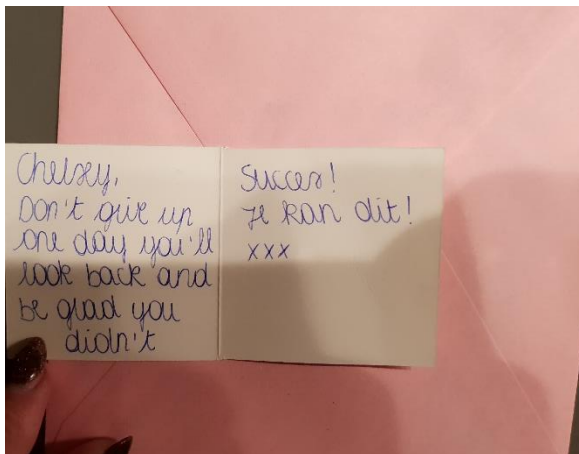 Chelsey,
Don't give up
one day you'll
look back and
be glad you
didn't
Succes!
Je kan dit!
xxx